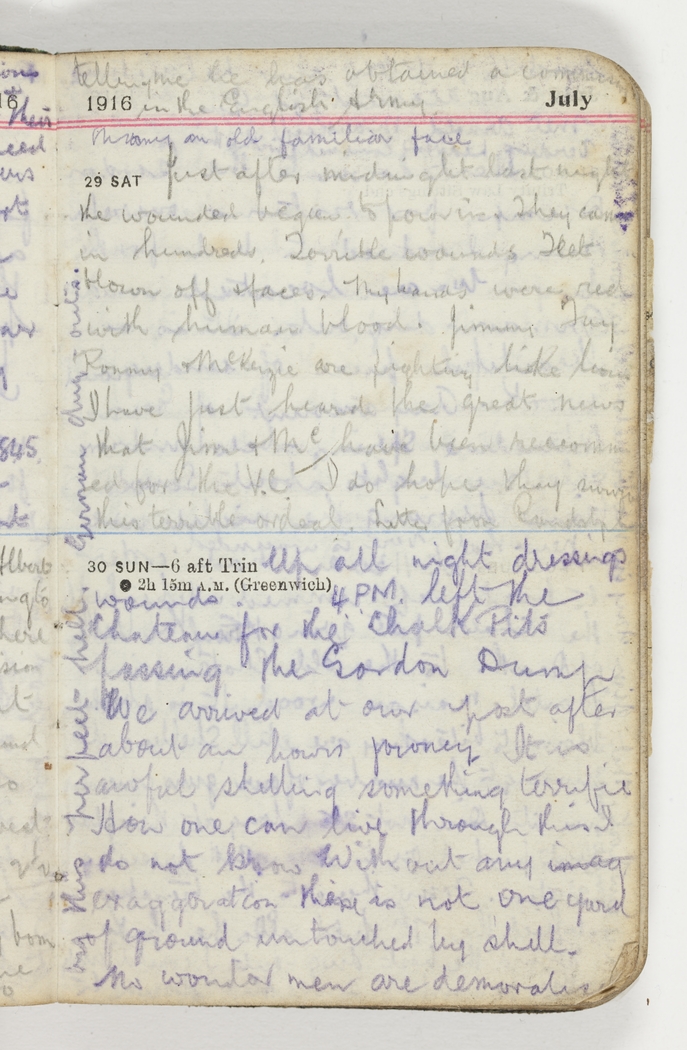 telling me he has obtained a commiss
1916 in the English Army July
Missing an old familiar face
29 SAT Just after midnight last night
the wounded began to pour in. They came
in hundreds. Terrible wounds
blown off & faces. My hands were red
with human blood. Jimmy, Tug
Pommy & McKenzie are fighting like lions
I have just heard the great news
that Jim & Mc have been recomm
ed for the V.C. I do hope they surviv
this terrible ordeal. Letter from
30 SUN—6 aft Trin Up all night dressings
● 2h 15m A.M. (Greenwich)
wounds. 4 PM. left the
Chateau for the Chalk Pits
passing the Gordon Dump
We arrived at our post after
about an hours journey It is
awful shelling something terrific
How one can live through this I
do not know Without any imag
exaggeration there is not one yard
of ground untouched by shell.
No wonder men are demoralis
ing this perfect hell. German dug outs.